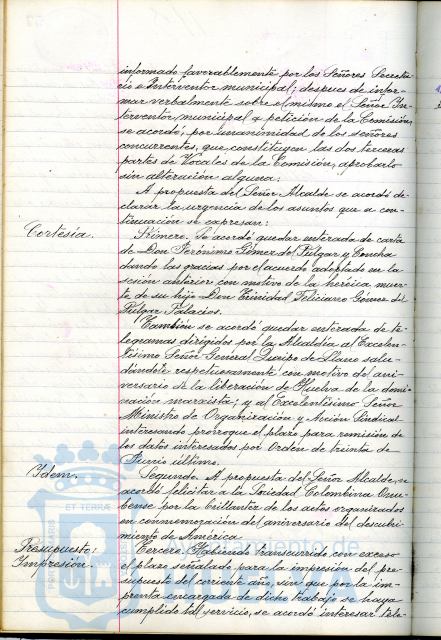 informado favorablemente por los Señores Secreta-
rio e Interventor municipal; despues de infor-
mar verbalmente sobre el mismo el Señor In-
terventor municipal a petición de la Comisión,
se acordó, por unanimidad de los señores
concurrentes, que constituyen las dos terceras
partes de Vocales de la Comisión, aprobarlo
sin alteración alguna.
A propuesta del Señor Alcalde se acordó de-
clarar la urgencia de los asuntos que a con-
tinuación se expresan:
Cortesía.
Primero. Se acordó quedar enterada de carta
de Don Jerónimo Gómez del Pulgar y Concha
dando las gracias por el acuerdo adoptado en la
sesión anterior con motivo de la heróica muer-
te de su hijo Don Trinidad Feliciano Gómez del
Pulgar Palacios.
También se acordó quedar enterada de te-
legramas dirigidos por la Alcaldía al Excelen-
tísimo Señor General Queipo de Llano salu-
dándole respetuosamente con motivo del ani-
versario de la liberación de Huelva de la domi-
nación marxista; y al Excelentísimo Señor
Ministro de Organización y Acción Sindical
interesando prorrogue el plazo para remisión de
los datos interesados por Orden de treinta de
Junio último.
Idem.
Segundo. A propuesta del Señor Alcalde, se
acordó felicitar a la Sociedad Colombina Onu-
bense por la brillantez de los actos organizados
en conmemoración del aniversario del descubri-
miento de America.
Presupuesto:
Impresión.
Tercero. Habiendo transcurrido con exceso
el plazo señalado para la impresión del pre-
supuesto del corriente año, sin que por la im-
prenta encargada de dicho trabajo se haya
cumplido tal servicio, se acordó interesar tele-
ET TERRÆ
Ayuntamiento de